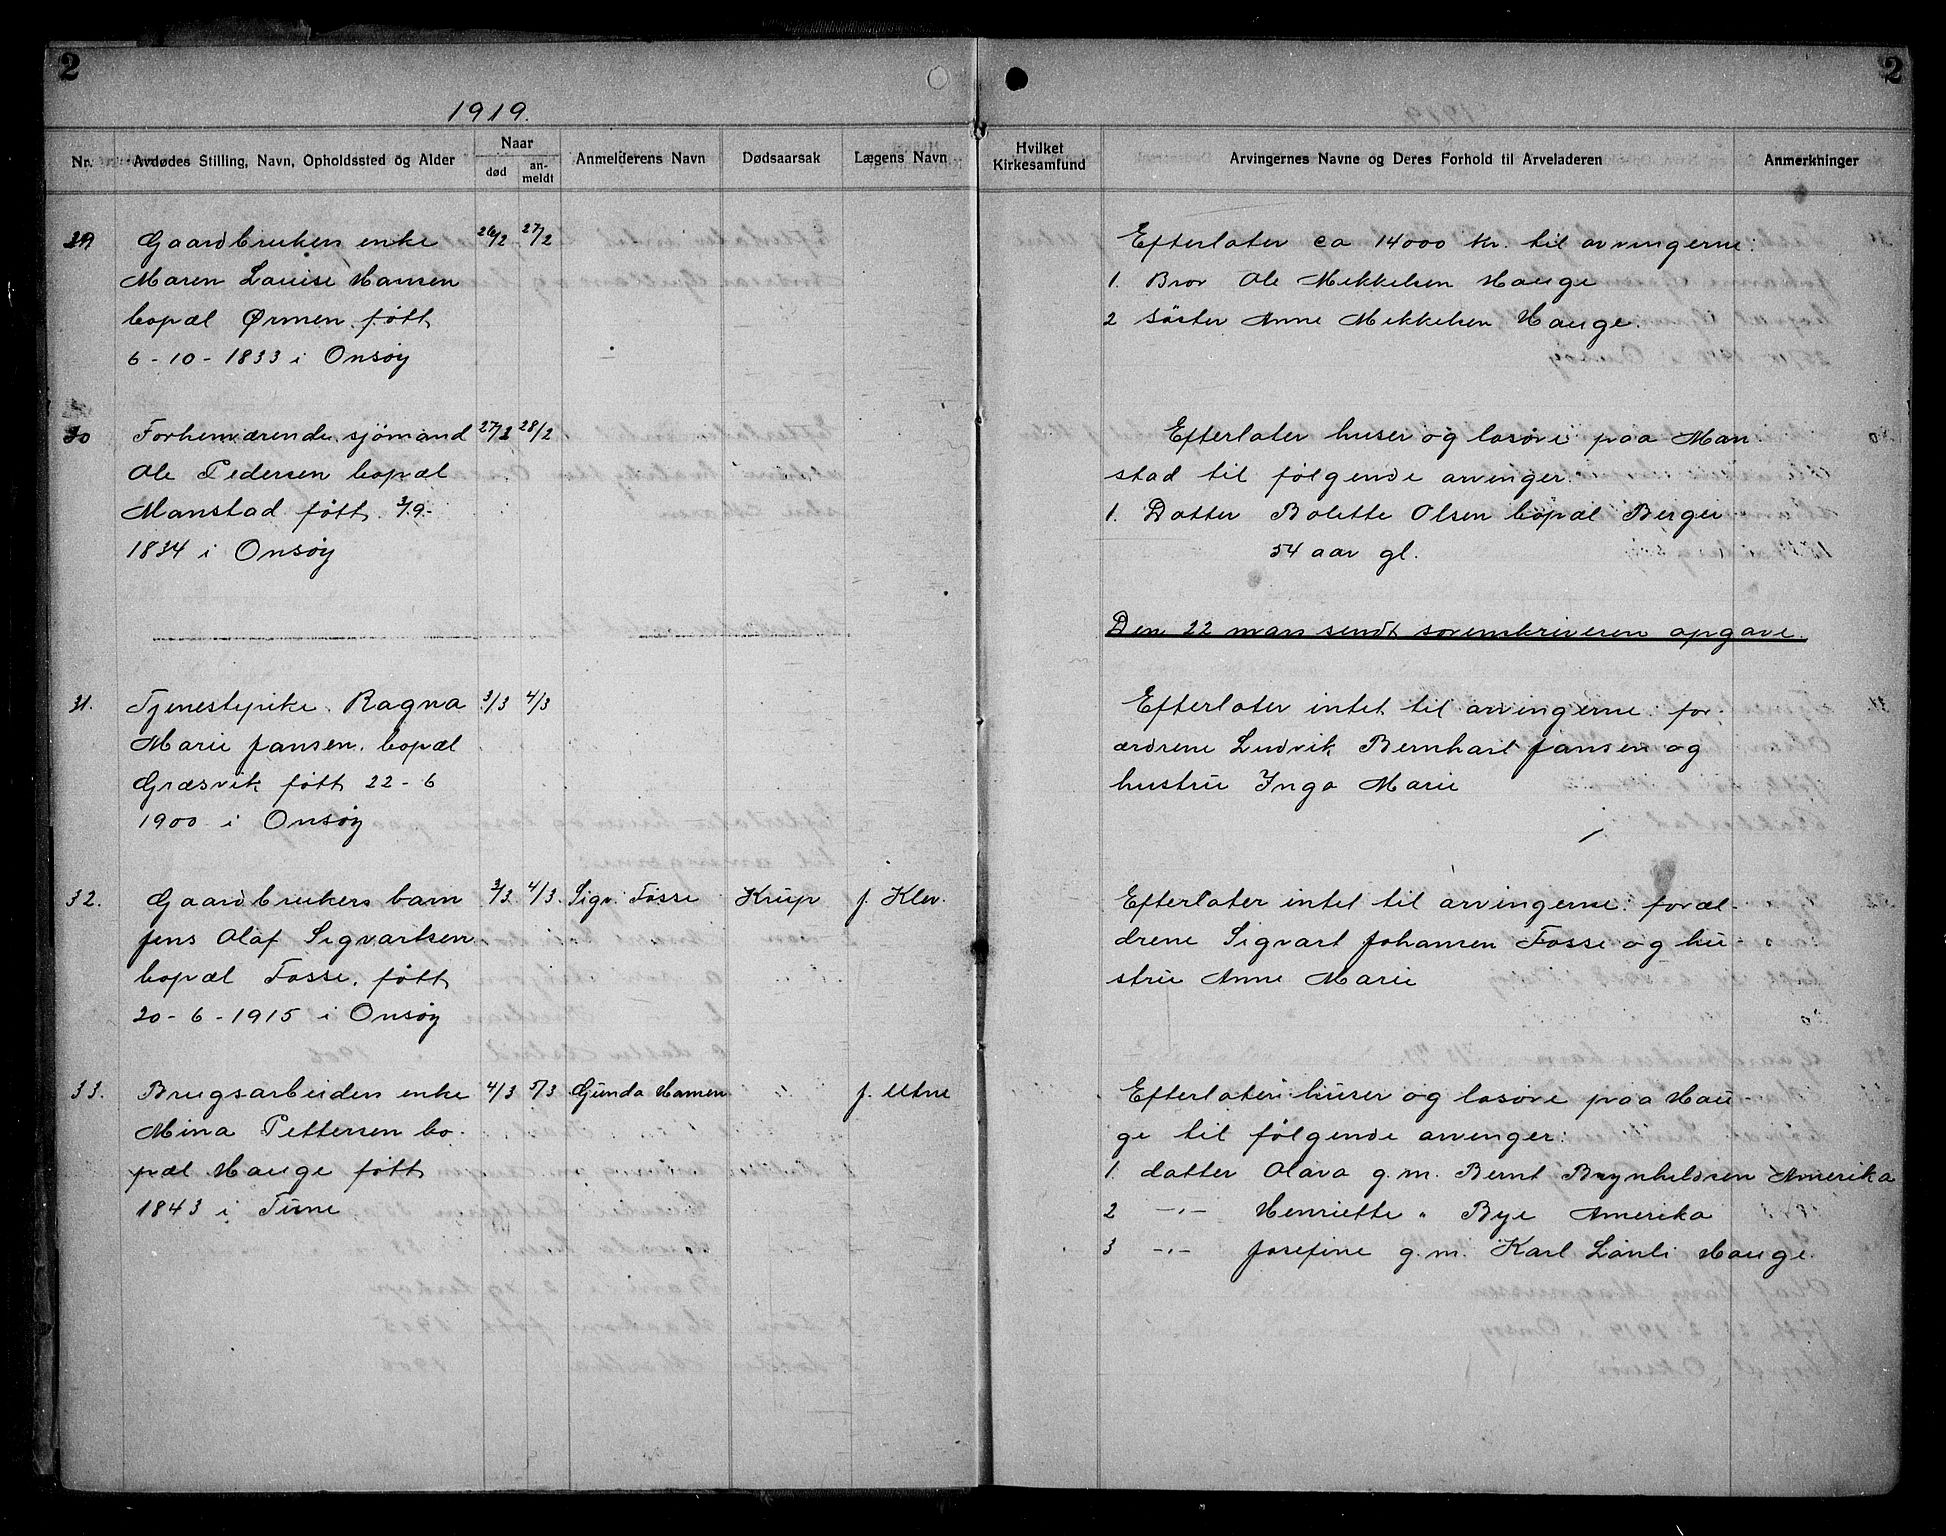 2
1919.
Nr.
Avdødes Stilling, Navn, Opholdssted og Alder
Naar
død
an-
meldt
Anmelderens Navn
Dødsaarsak
Lægens Navn
29 Gaardbrukers enke 26/2 27/2
Maren Louise Hansen
bopæl Ørmen født
6-10-1833 i Onsøy
30 Forhenværende sjömand 27/2 28/2
Ole Pedersen bopæl
Manstad født 3/9-
1834 i Onsøy
31. Tjenestepike Ragna 3/3 4/3
Marie Jansen, bopæl
Græsvik født 22-6
1900 i Onsøy
32. Gaardbrukers barn 3/3 4/3. Sigv. Fosse Krup J. Klev.
Jens Olaf Sigvartsen
bopæl Fosse, født
20-6-1915 i Onsøy
33. Brugsarbeiders enke 4/3 5/3 Gunda Hansen J. Utne
Mina Pettersen bo-
pæl Hauge født
1843 i Tune
2
Hvilket
Kirkesamfund
Arvingernes Navne og Deres Forhold til Arveladeren
Anmerkninger
Efterlater ca 14000 kr. til arvingerne:
1. Bror Ole Mikkelsen Hauge
2 söster Anne Mikkelsen Hauge.
Efterlater huser og lösöre paa Man
stad til følgende arvinger.
1. Datter Bolette Olsen bopæl Berger
54 aar gl.
Den 22 mars sendt sorenskriveren opgave.
Efterlater intet til arvingerne for-
ældrene Ludvik Bernhart Jansen og
hustru Inga Marie
Efterlater intet til arvingerne foræl-
drene Sigvart Johansen Fosse og hu-
stru Anne Marie
Efterlater huser og lösöre paa Hau-
ge til følgende arvinger:
1. datter Olava g.m. Bernt Brynhildsen Amerika
2 -"- Henriette " Bye Amerika
3 -"- Josefine g.m. Karl Lönli Hauge.